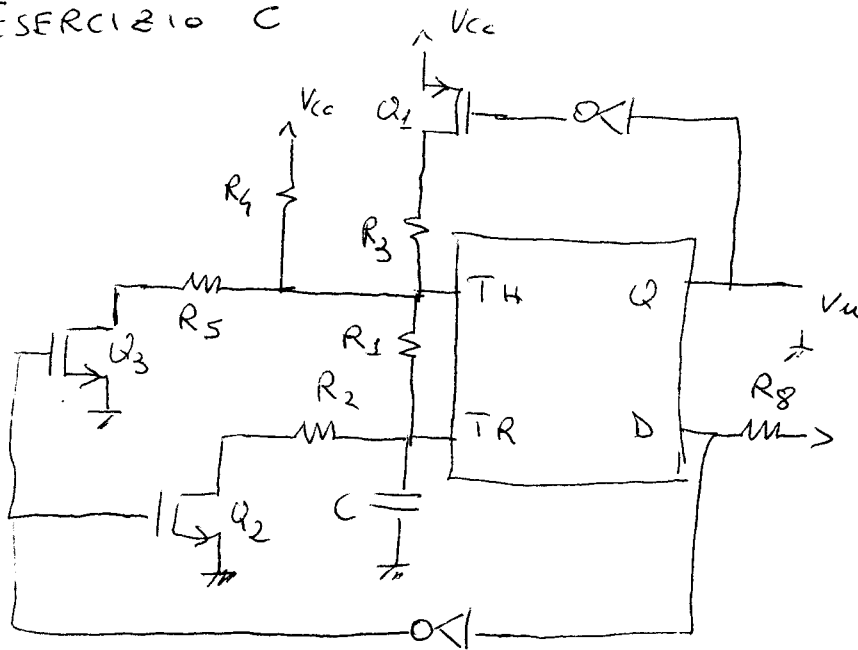 ESERCIZIO C
Vcc
Vcc
Q1
R4
R3
TH
Q
Vu
R5
R1
Q3
R2
R8
TR
D
Q2
C